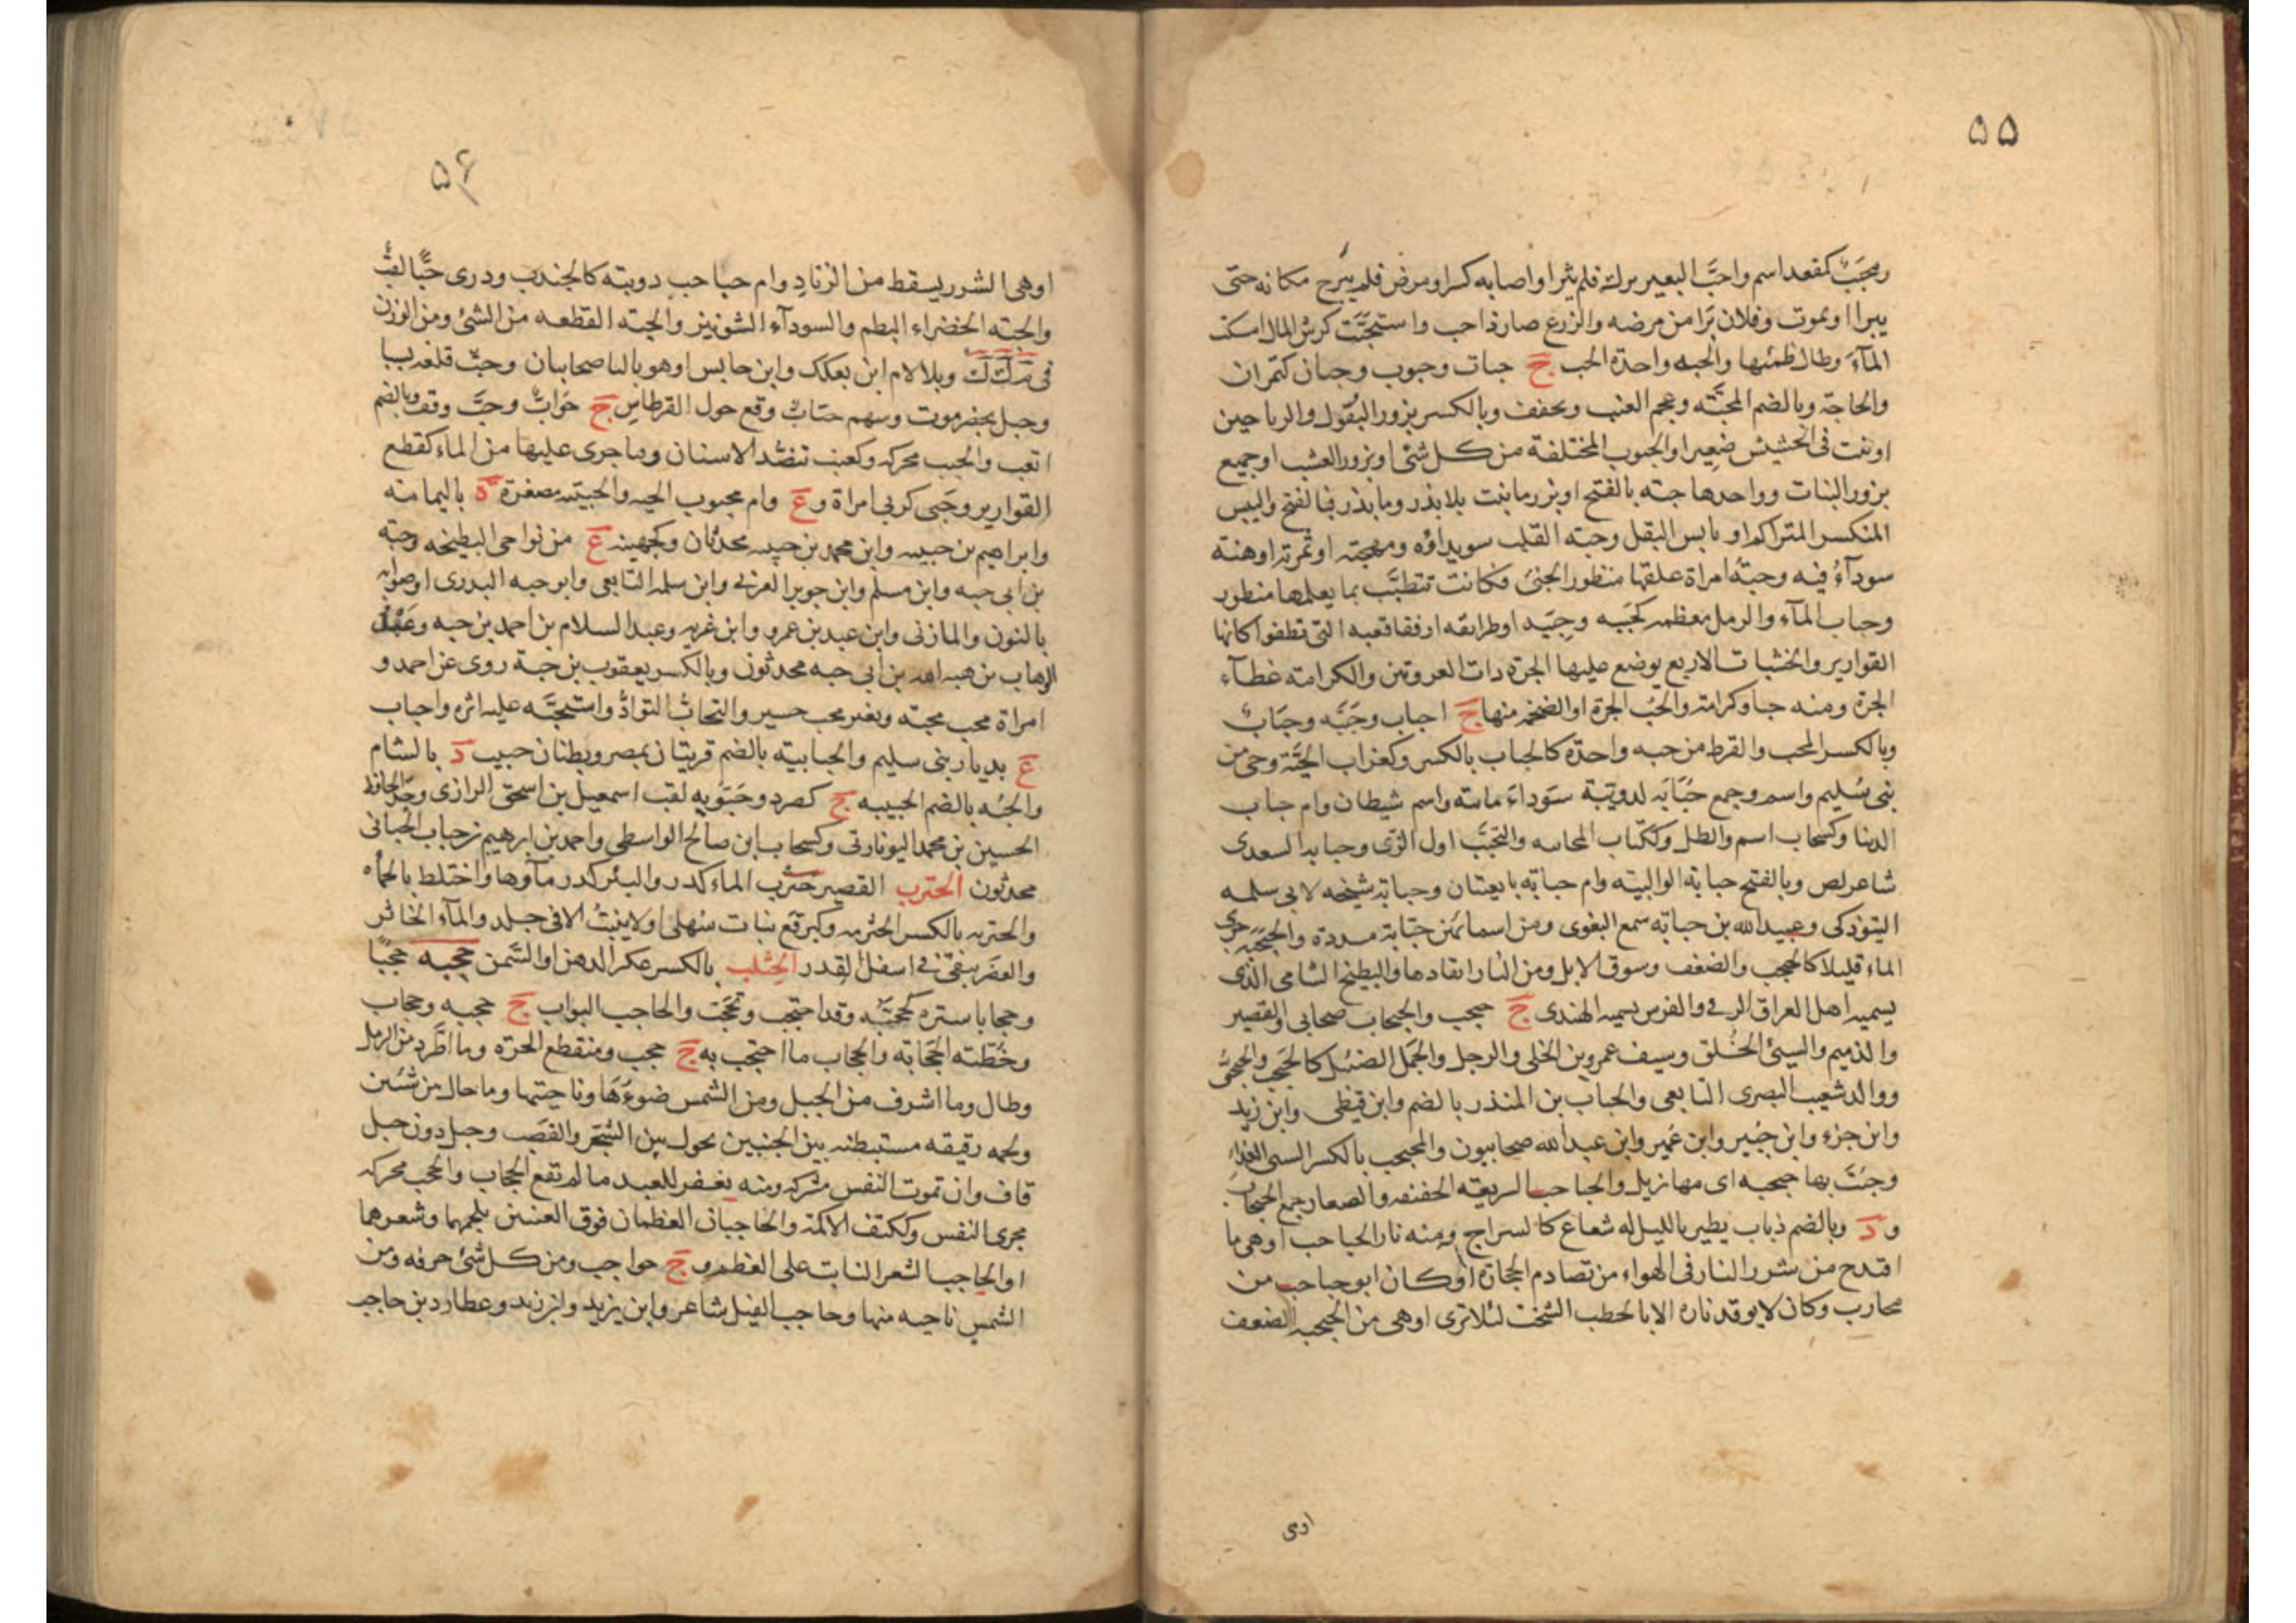 ۵۵
ومحبب كمقعد اسم واحبَّ البعير برك فلم يثر او اصابه كسر او مرض فلم يبرح مكانه حتى
يبرا او يموت وفلان برَا من مرضه والزرع صار ذا حب واستحبَّت كرش المال امسكت
المآء وطال ظمئها والحبه واحدة الحب ج حبات وحبوب وحبان كتمران
والحاجة وبالضم المحبَّه وعجم العنب ويخفف وبالكسر بزور البقول والرياحين
او نبت فى الحشيش صغير او الحبوب المختلفة من كل شئ او بزور العشب او جميع
بزور النبات وواحدها حبه بالفتح او بزر ما نبت بلا بذر وما بذر فبالفتح واليبيس
المتكسر المتراكم او يابس البقل وحبة القلب سويداؤه ومهجته او ثمرته او هنة
سودآء فيه وحبةُ امراة علقها منظور الجنى فكانت تتطبَّب بما يعلمها منظور
وحباب المآء والرمل معظمه كحَبَبه وحِبَبه او طرائقه او فقاقعه التى تطفوا كانها
القوارير والخشبات الاربع يوضع عليها الجرة ذات العروتين والكرامة غطآء
الجرة ومنه حبا وكرامة والحُب الجرة او الضخمه منها ج احباب وحَبَبَه وحِبَابٌ
وبالكسر المحب والقرط من حبه واحدة كالحباب بالكسر وكغراب الحيَّة وحى من
بنى سُليم واسم وجمع حُبَابَه لدويبة سَوداءَ مائه واسم شيطان وام حباب
الدنيا وكسحاب اسم والطل وككتاب المحاببه والتحبَّب اول الرى وحبابه السعدى
شاعر لص وبالفتح حبابة الوالبيّه وام حبابه تابعيتان وحبابة شيخه لابى سلمه
التبوذكى وعبيد الله بن حبابه سمع البغوى ومن اسمائهن حبَّابة مسددة والحبحبَه جرى
الماء قليلا كالحبحب والضعف وسوق الابل ومن النار اتقادها والبطيخ الشامى الذى
يسميه اهل العراق الرقى والفرس يسميه الهندى ج حبحب والحبحاب صحابى والقصير
والذميم والسيئ الخُلق وسيف عمرو بن الخلى والرجل والجمل الضئيل كالحَبحب والحبحبىُّ
ووالد شعيب البصرى التابعى والحباب بن المنذر بالضم وابن قيظى وابن زيد
وابن جزء وابن جُبير وابن عُمير وابن عبد الله صحابيون والمحبحب بالكسر السىء الغذاءِ
وجئت بها حبحبه اى مهازيل والحباحب السريعه الخفيفه والصغار جمع الحبحاب
و د وبالضم ذباب يطير بالليل له شعاع كالسراج ومنه نار الحباحب او هى ما
اقتدح من شرر النار فى الهواء من تصادم الحجارة او كان ابو حباحب من
محارب وكان لا يوقد ناره الا بالحطب الشخت لئلا ترى او هى من الحبحبه الضعف
اوهى
۵۶
او هى الشرر يسقط من الزناد وام حباحب دويبّه كالجندب وذرى حبًّا لقبٌ
والحبّه الخضراء البطم والسودآء الشونيز والحبّه القطعه من الشئ ومن الوزن
فى م ك ك وبلا لام ابن بعكك وابن حابس او هو بالنا صحابيان وحبّ قلعه بسبا
وجبل بحضرموت وسهم حابٌّ وقع حول القرطاس ج حَوابٌّ وحبَّ وقف وبالضم
اتعب والحبب محركه وكعنب تنضّد الاسنان وما جرى عليها من الماء كقطع
القوارير وحَبى كربى امراة و ع وام محبوب الحيه والحبيبَه مصغرة ة باليمامة
وابراهيم بن حبيبه وابن محمد بن حبيبه محدثان وكجهينه ع من نواحى البطيحه وحبّه
بن ابى حبه وابن مسلم وابن جوير العرنى وابن سلمه التابعى وابو حبه البدرى او صوابه
بالنون والمازنى وابن عبد بن عمرو وابن غزيه وعبد السلام بن احمد بن حبه وعبد
الوهاب بن هبه الله بن ابى حبه محدثون وبالكسر يعقوب بن حبة روى عن احمد و
امراة محب محبّه وبعير محب حسير والتحابُّ التوادُّ واستحبَّه عليه اثره واحباب
ع بديار بنى سليم والحبابيه بالضم قريتان بمصر وبطنان حبيب د بالشام
والحُبه بالضم الحبيبه ج كصرد وحَبّويه لقب اسمعيل بن اسحق الرازى وجدّ الحافظ
الحسين بن محمد اليونارتى وكسحاب ابن صالح الواسطى واحمد بن ابرهيم بن حباب الحبابى
محدثون الحترب القصير حثرب الماء كدر والبئر كدر مآؤها واختلط بالحمأه
والحثربه بالكسر الحثرمه وكبرقع نبات سُهلى او لا ينبتُ الا فى جلد والمآء الخاثر
والعضَر يبقى فى اسفل القدر الحِثلب بالكسر عكر الدهن او السَّمن حجبه حجبًا
وحجابا ستره كحجبَّه وقد احتجب وتحَجّب والحاجب البواب ج حجبه وحجاب
وخُطّته الحجَابَه والحجاب ما احتجب به ج حجب ومنقطع الحرّه وما اطّرد من الرمل
وطال وما اشرف من الجبل ومن الشمس ضوءَها وناحيتها وما حال بين شيئين
ولحمه رقيقه مستبطنه بين الجنبين تحول بين السَّحَر والقصَب وجبل دون جبل
قاف وان تموت النفس مشركه ومنه يغفر للعبد ما لم تقع الحجاب والحجب محركه
مجرى النفس وككتف الاكمة والحاجبان العظمان فوق العينين بلحمهما وشعرهما
او الحاجب الشعر النابت على العظم و ج حواجب ومن كل شئ حرفه ومن
الشمس ناحيه منها وحاجب الفيل شاعر وابن يزيد وابن زيد وعطارد بن حاجب